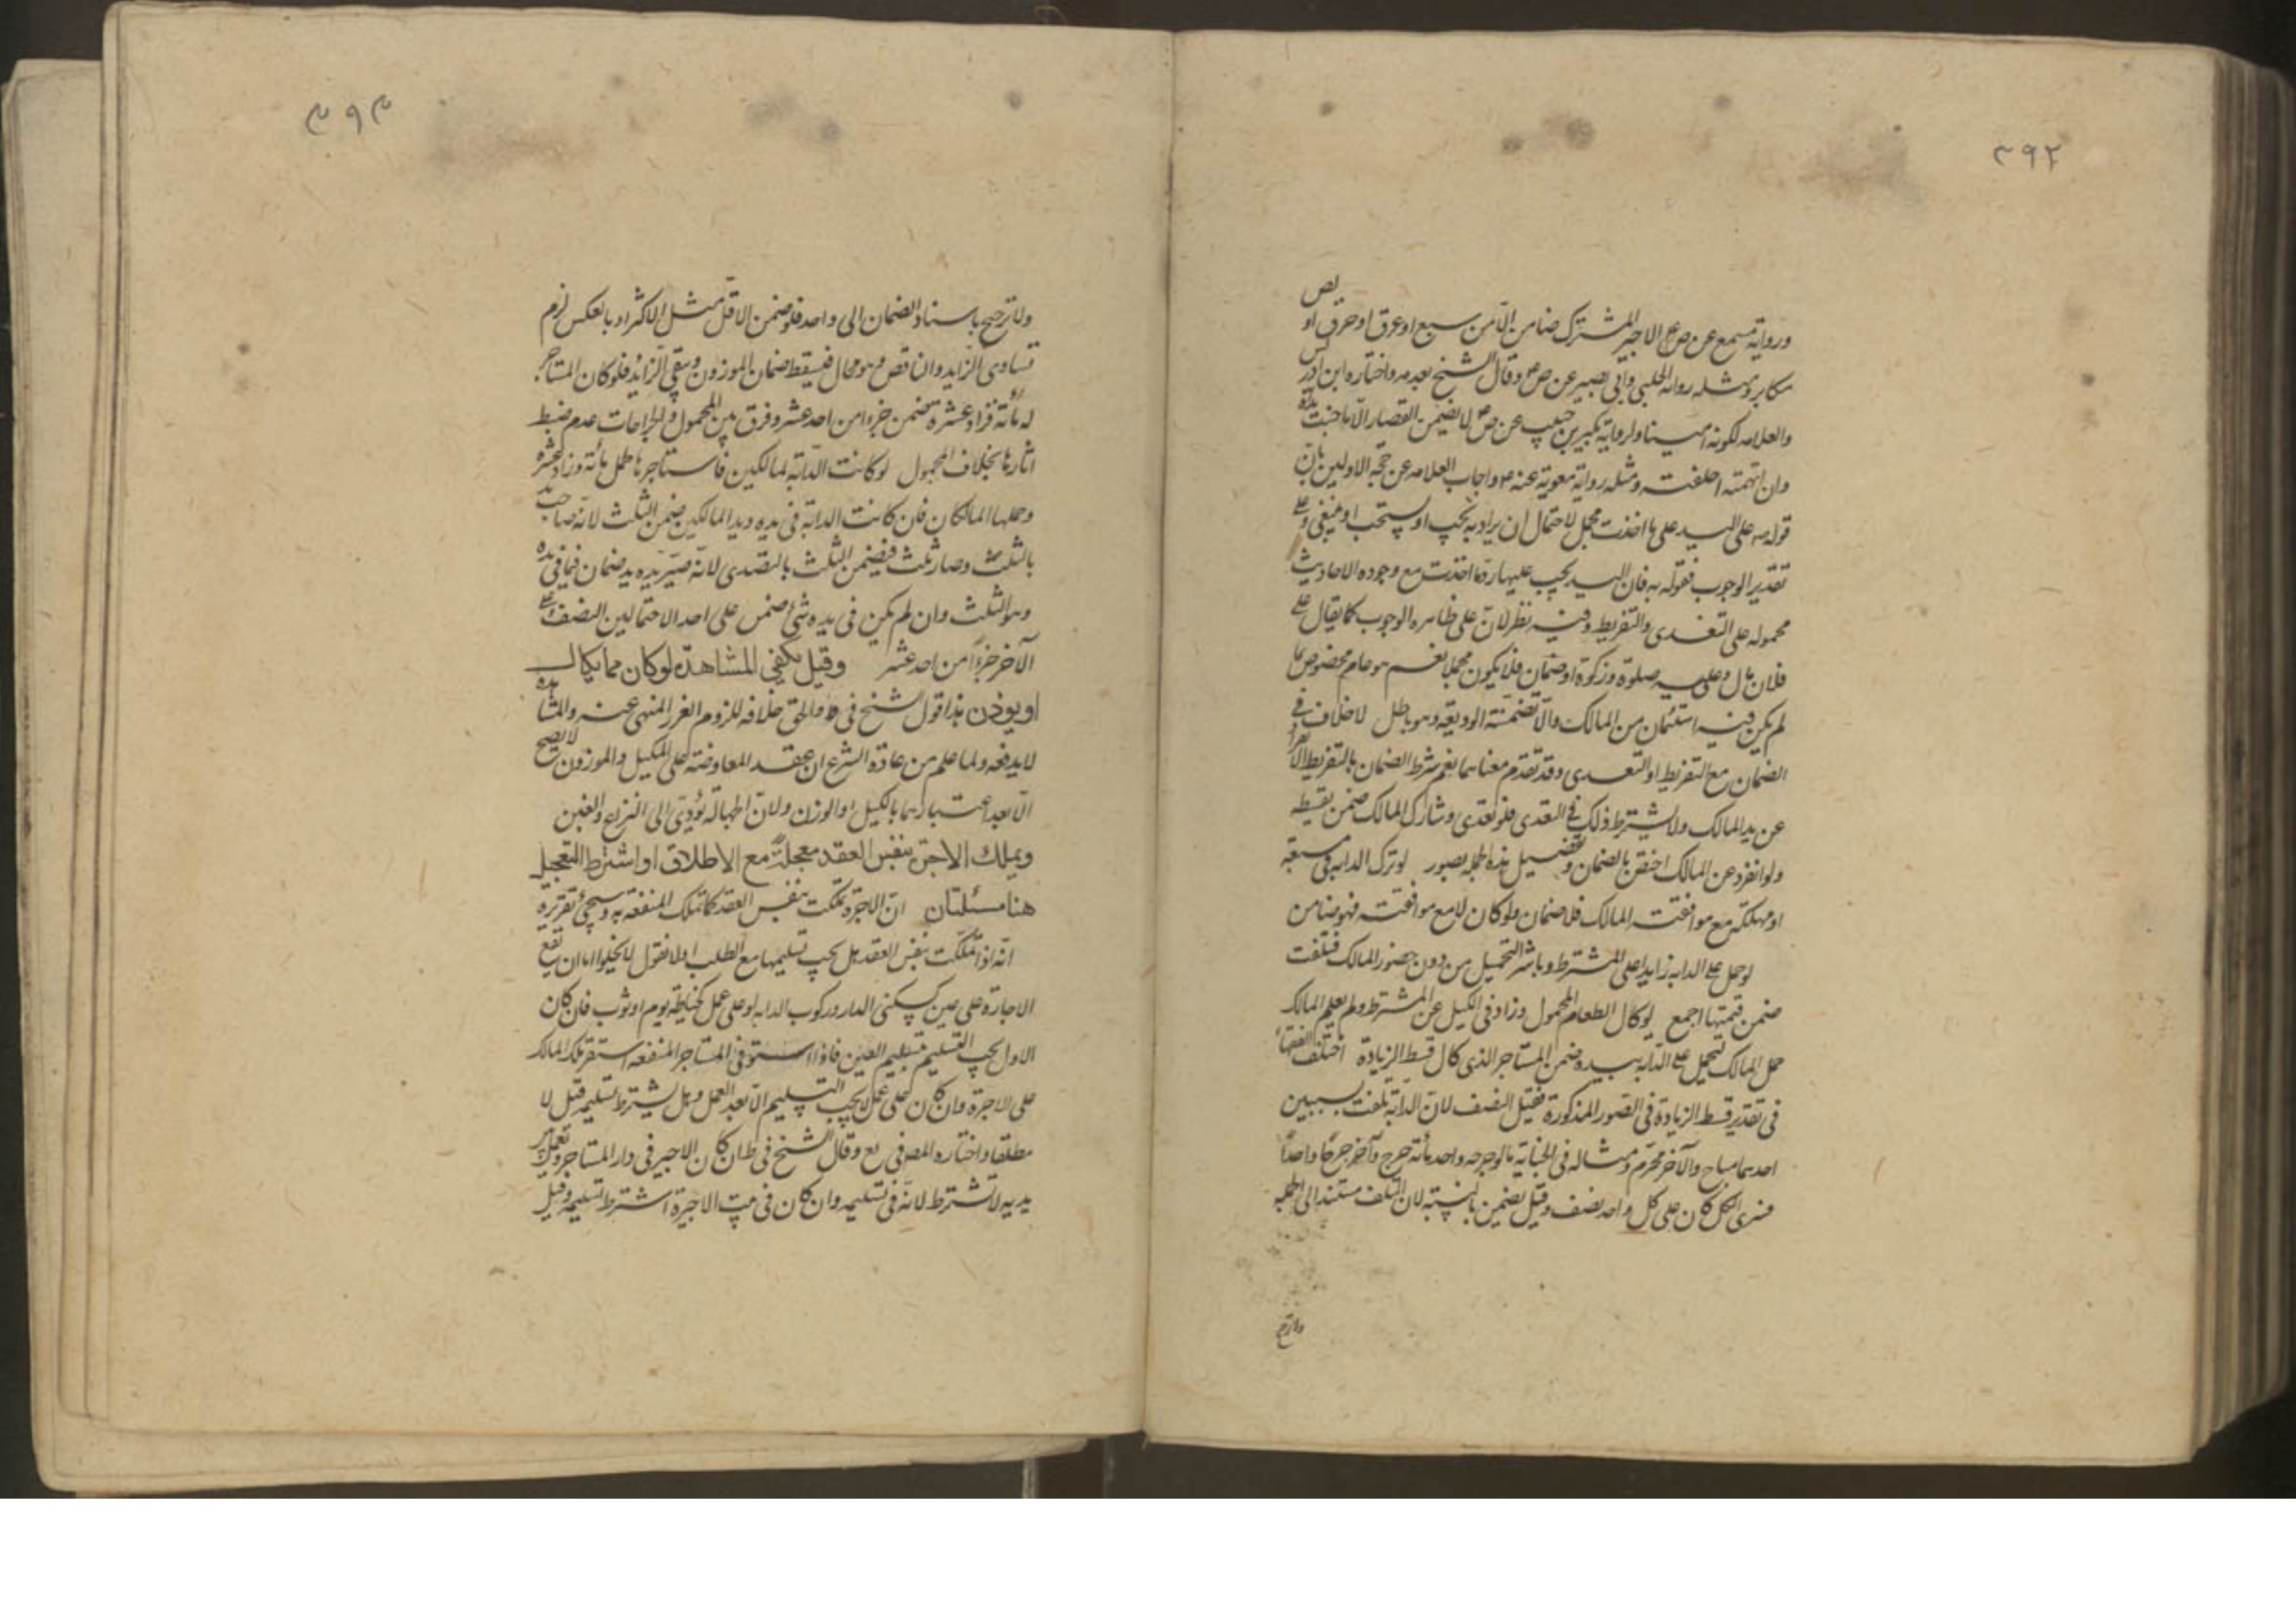 ٣٩٢
ورواية مسمع عن ص ع الاجير المشترك ضامن الّا من سبع او غرق او حرق او لص
مكابر ومثله رواية الحلبي وابي بصير عن ص ع وقال الشيخ بعدمه واختاره ابن ادريس
والعلامه لكونه امينا ولرواية بكير بن حبيب عن ص ع لا يضمن القصار الّا ما جنت يداه
وان اتهمته احلفته ومثله رواية معوية عنه ع واجاب العلامه عن حجة الاولين بان
قوله ع على اليد على ما اخذت مجمل لاحتمال ان يراد به يجب او يستحب او ينبغي وعلى
تقدير الوجوب فنقوله به فان اليد يجب عليها رد ما اخذت مع وجوده الاحاديث
محموله على التعدى والتفريط وفيه نظر لان على ظاهره الوجوب كما يقال على
فلان مال وعليه صلوة وزكوة او ضمان فلا يكون مجملا نعم هو عام مخصوص بما
لم يكن فيه استئمان من المالك والّا تضمنته الوديعة وهو باطل لا خلاف في
الضمان مع التفريط او التعدى وقد تقدم معناهما نعم شرط الضمان بالتفريط الانفراد
عن يد المالك ولا يشترط ذلك في التعدى فلو تعدى وشارك المالك ضمن بقسطه
ولو انفرد عن المالك اختص بالضمان وتفصيل هذه الجملة بصور لو ترك الدابه في مسبعة
او مهلكة مع موافقت المالك فلا ضمان ولو كان لا مع موافقته فهو ضامن
لو حمل على الدابه زايدا على المشترط وباشر التحميل من دون حضور المالك فتلفت
ضمن قيمتها اجمع لو كال الطعام المحمول وزاد في الكيل عن المشترط ولم يعلم المالك
حمل المالك على الدابه بيده ضمن المستاجر الذى كال قسط الزيادة اختلف الفقهاء
في تقدير قسط الزيادة في الصور المذكورة فقيل النصف لان الدابة تلفت بسببين
احدهما مباح والآخر محرّم ومثاله في الجناية ما لو جرحه واحد مائة جرح وآخر جرحا واحدا
فسرى الكل كان على كل واحد نصف وقيل يضمن بالنسبة لان التلف مستند الى الجملة
ولا ترجيح
٣٩٣
ولا ترجيح باسناد الضمان الى واحد فلو ضمن الاقل مثل الاكثر او بالعكس لزم
تساوى الزايد والناقص وهو محال فيسقط ضمان الموزون ويبقى الزائد فلو كان المستاجر
له مائة فزاد عشرة ضمن جزءا من احد عشر وفرق بين المحمول والجراحات عدم ضبط
اثارها بخلاف المحمول لو كانت الدابة لمالكين فاستاجرها لحمل مائة وزاد عشرة
وحملها المالكان فان كانت الدابة في يده ويد المالكين ضمن الثلث لانه صاحب يد
بالثلث وصار ثلث فيضمن الثلث بالتعدى لانه صيّر يده يد ضمان فما في يده
وهو الثلث وان لم يكن في يده شئ ضمن على احد الاحتمالين النصف وعلى
الآخر جزءًا من احد عشر وقيل يكفي المشاهدة لو كان مما يكال
او يوزن هذا قول الشيخ في ط والحق خلافه للزوم الغرر المنهى عنه والمشاهدة
لا يدفعه ولما علم من عادة الشرع ان عقد المعاوضة على المكيل والموزون لا يصح
الّا بعد اعتبارهما بالكيل او الوزن ولان الجهالة تؤدى الى النزاع والغبن
ويملك الاجرة بنفس العقد معجلة مع الاطلاق او اشتراط التعجيل
هنا مسئلتان ان الاجرة تملكت بنفس العقد كما تملك المنفعة به وسيجئ تقريره
انه اذا تملكت بنفس العقد هل يجب تسليمها مع الطلب او لا نقول لا يخلوا اما ان تقع
الاجارة على عين كسكنى الدار وركوب الدابه او على عمل كخياطة يوم او ثوب فان كان
الاول يجب التسليم بتسليم العين فاذا استوفى المستاجر المنفعه استقر ملك المالك
على الاجرة وان كان على عمل لا يجب التسليم الّا بعد العمل وهل يشترط تسليمه قيل لا
مطلقا واختاره المصـ في يع وقال الشيخ في ط ان كان الاجير في دار المستاجر ويعمل بين
يديه لا تشترط لانه في تسليمه وان كان في بيت الاجيرة اشترط تسليمه وقيل